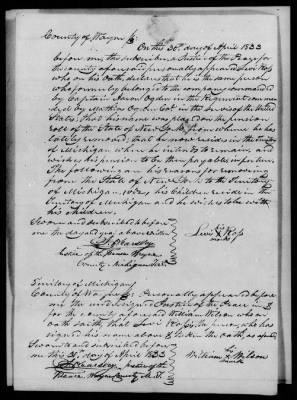 County of Wayne Ss.
On this 30th day of April 1833
before me the subscriber a Justice of the Peace for
the county aforesaid personally appeared Levi Rose
who on his oath, declares that he is the same person
who formerly belonged to the company commanded
by Captain Aaron Ogden in the Regiment comman
ded by Mathias Ogden Col. in the service of the United
States; that his name was placed on the pension
roll of the State of New York from whence he has
lately removed; that he now resides in the Territory
of Michigan where he intends to remain and
wishes his pension to be there payable in future.
The following are his reasons for removing
from the State of New York to the Territory
of Michigan, viz. his Children reside in the
Territory of Michigan and he wishes to be with
his children.
Sworn and subscribed to before
me the day and year above written
Levi X Rose
mark
Justice of the Peace Wayne
County Michigan Ter.
Territory of Michigan
County of Wayne Ss. Personally appeared before
me the undersigned Justice of the Peace in &
for the county aforesaid William Wilson who on
oath saith that Levi Rose is the person who has
signed his name above &
Sworn to and subscribed to before
me this 30th day of April 1833
William X Wilson
mark
Justice of the
Peace Wayne County M. T.